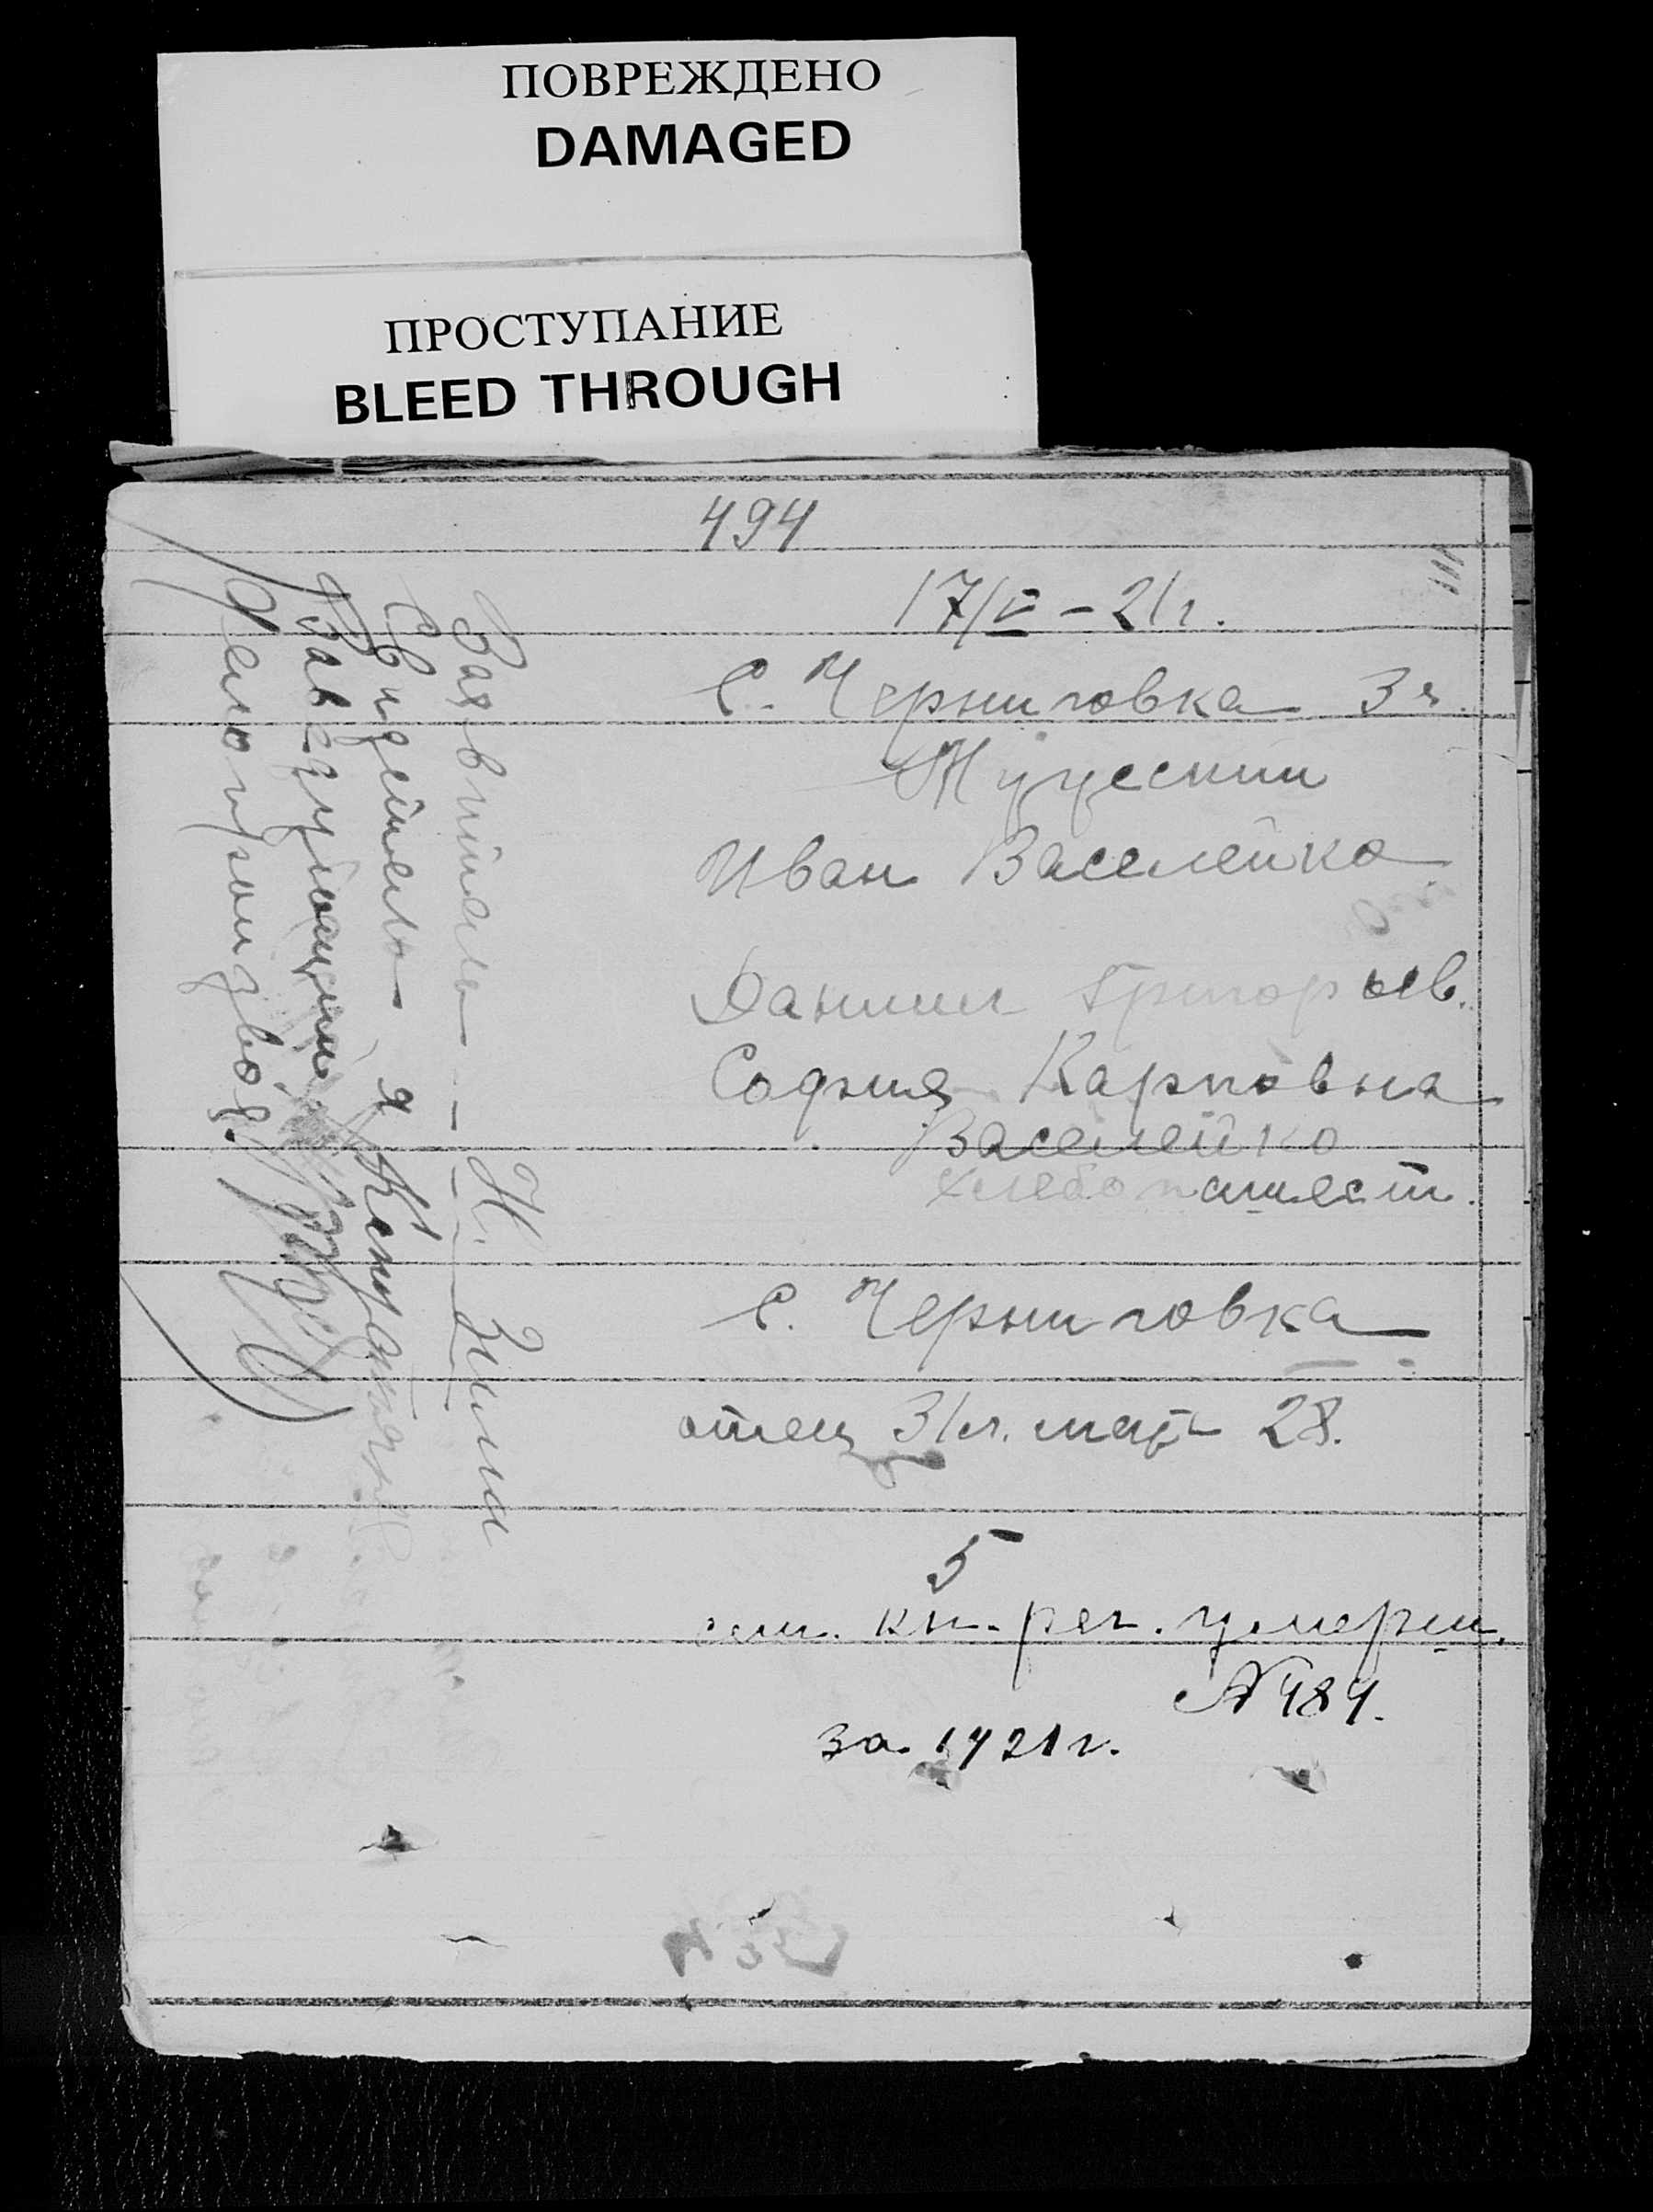 ПОВРЕЖДЕНО
DAMAGED
ПРОСТУПАНИЕ
BLEED THROUGH
494
17/V – 21 г.
С. Черниговка 3 ч.
Мужеский
Иван Васелейко
Даниил Григорьев.
София Карповна
Васелейко
хлебопашест.
С. Черниговка
отец 31 л. мать 28.
5
см. кн. рег. умерш.
№ 484.
за 1921 г.
Заявитель – Н. Зимин
Свидетель я
Заведующий
Делопроизвод.